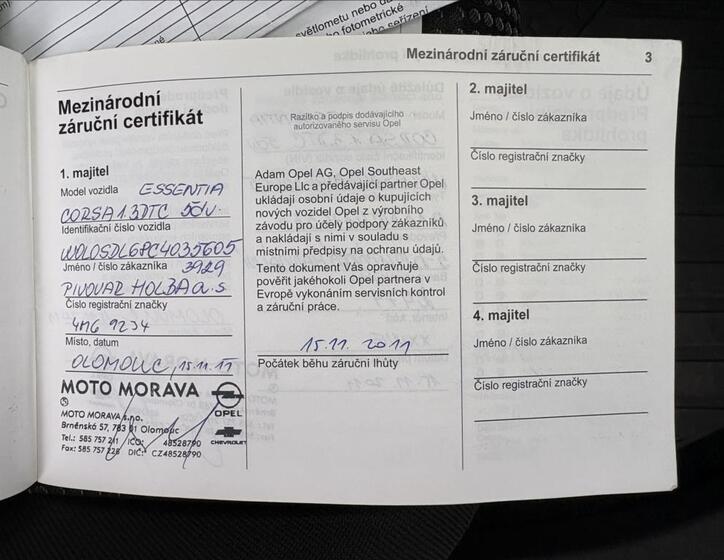 světlometu nebo
fotometrické
seřízení
Mezinárodní záruční certifikát 3
Mezinárodní
záruční certifikát
1. majitel
Model vozidla ESSENTIA
CORSA 1.3DTC 5dv.
Identifikační číslo vozidla
W0L0SDL6PC4035605
Jméno / číslo zákazníka 3929
PIVOVAR HOLBA a.s
Číslo registrační značky
4M6 9234
Místo, datum
OLOMOUC, 15.11.11
MOTO MORAVA
OPEL
CHEVROLET
MOTO MORAVA s.r.o.
Brněnská 57, 783 01 Olomouc
Tel.: 585 757 211 IČO: 48528790
Fax: 585 757 228 DIČ: CZ48528790
Razítko a podpis dodávajícího
autorizovaného servisu Opel
Adam Opel AG, Opel Southeast
Europe Llc a předávající partner Opel
ukládají osobní údaje o kupujících
nových vozidel Opel z výrobního
závodu pro účely podpory zákazníků
a nakládají s nimi v souladu s
místními předpisy na ochranu údajů.
Tento dokument Vás opravňuje
pověřit jakéhokoli Opel partnera v
Evropě vykonáním servisních kontrol
a záruční práce.
15.11.2011
Počátek běhu záruční lhůty
2. majitel
Jméno / číslo zákazníka
Číslo registrační značky
3. majitel
Jméno / číslo zákazníka
Číslo registrační značky
4. majitel
Jméno / číslo zákazníka
Číslo registrační značky